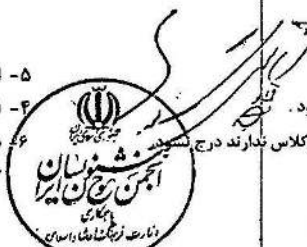 ۵- ا
ود.
۴- ا
کلاس ندارند درج نشود.
۶-
انجمن خوشنویسان ایران
باهمکاری
وزارت فرهنگ و ارشاد اسلامی